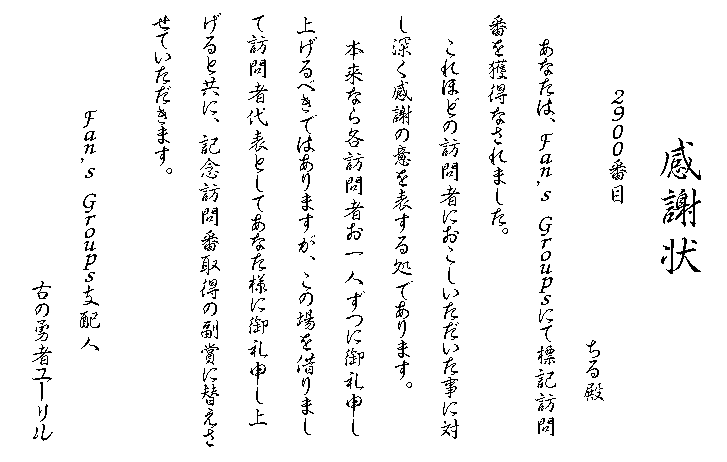 感謝状
2900番目
ちる殿
あなたは、Fan's Groupsにて標記訪問
番を獲得なされました。
これほどの訪問者におこしいただいた事に対
し深く感謝の意を表する処であります。
本来なら各訪問者お一人ずつに御礼申し
上げるべきではありますが、この場を借りまし
て訪問者代表としてあなた様に御礼申し上
げると共に、記念訪問番取得の副賞に替えさ
せていただきます。
Fan's Groups支配人
古の勇者ユーリル